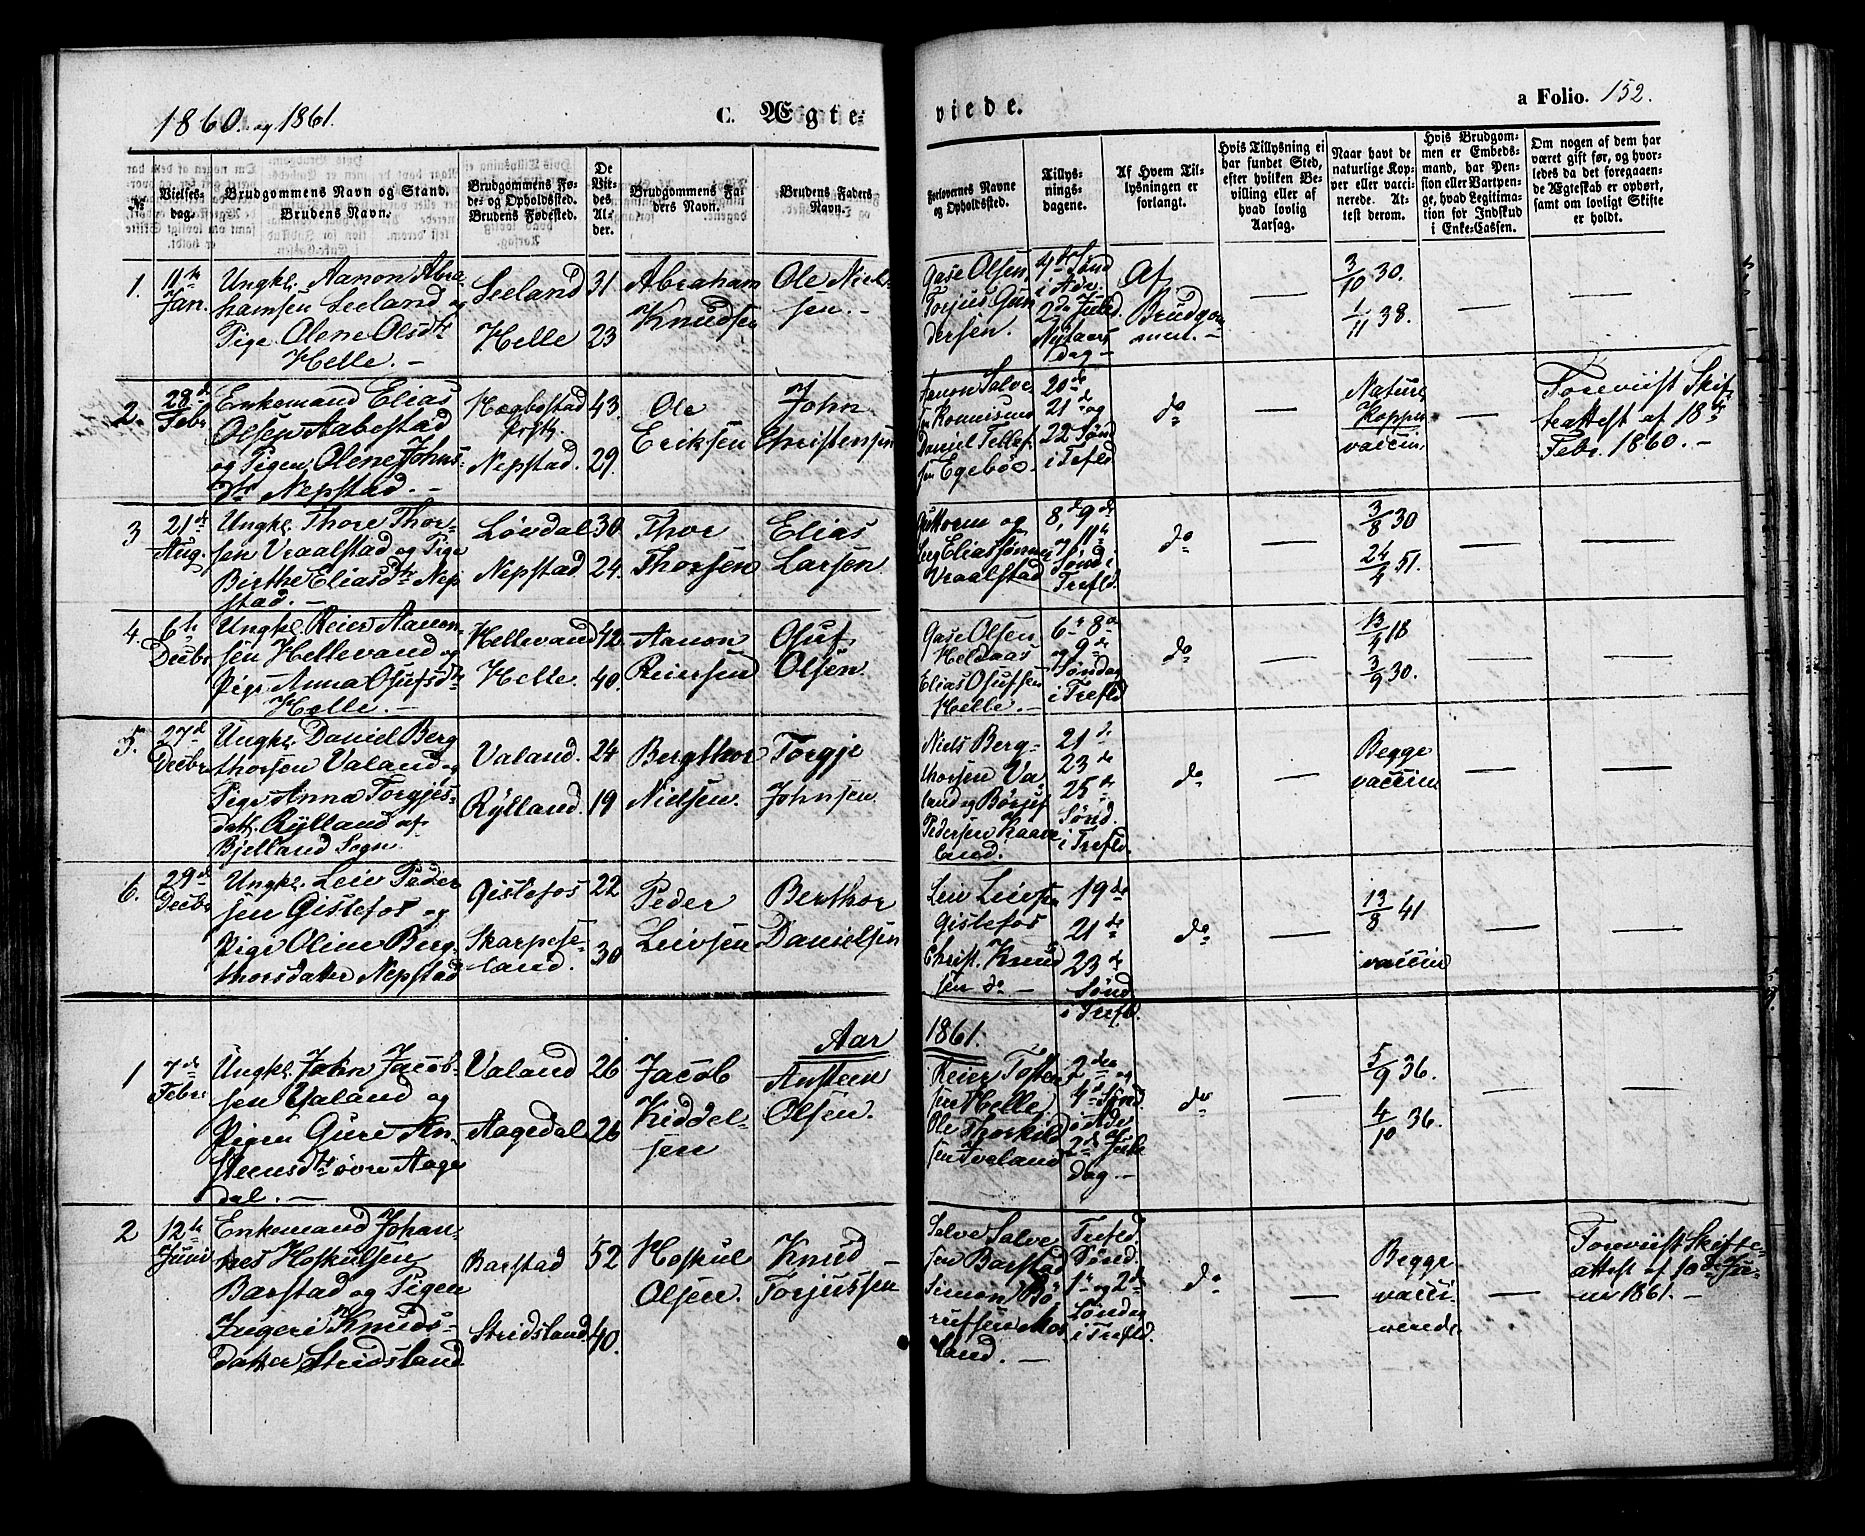 1860. og 1861.
C. Ægte-
viede.
a Folio. 152.
№
Vielses-
dag.
Brudgommens Navn og Stand.
Brudens Navn.
Brudgommens Fø-
de- og Opholdssted.
Brudens Fødested.
De
Vie-
des
Al-
der.
Brudgommens Fa-
ders Navn.
Brudens Faders
Navn.
Forlovernes Navne
og Opholdssted.
Tillys-
nings-
dagene.
Af Hvem Til-
lysningen er
forlangt.
Hvis Tillysning ei
har fundet Sted,
efter hvilken Be-
villing eller af
hvad lovlig
Aarsag.
Naar havt de
naturlige Kop-
per eller vacci-
nerede. At-
test derom.
Hvis Brudgom-
men er Embeds-
mand, har Pen-
sion eller Vartpen-
ge, hvad Legitima-
tion for Indskud
i Enke-Cassen.
Om nogen af dem har
været gift før, og hvor-
ledes da det foregaaen-
de Ægteskab er ophørt,
samt om lovligt Skifte
er holdt.
1.
11te
Jan.
Ungkl. Aanon Abra
hamsen Seeland og
Pige Olene Olsdtr
Helle. —
Seeland
Helle
31
23
Abraham
Knudsen
Ole Niel-
sen. —
Gase Olsen
Torjus Gun
dersen.
4de Sønd
i Adv.
2den Juled.
Nytaars
dag —
Af
Brudgom
men. —
—
3/10 30.
1/11 38.
—
2.
28de
Febr
Enkemand Elias
Olsen Aabestad
og Pigen Olene Johns-
dtr Nepstad. —
Hægbostad
Nepstad.
43.
29.
Ole
Eriksen
John
Christensen
Daniel Tellef-
sen Egebøe.
20de
21de og
22 Sønd
i Trefld
do
—
Naturl.
Kopper
vaccin.
—
Foreviist Skif-
teattest af 18de
Febr. 1860. —
3
21de
Aug.
Ungkl. Thore Thor-
sen Vraalstad og Pige
Birthe Eliasdtr Nep
stad. —
Løvdal
Nepstad
30
24.
Thor
Thorsen
Elias
Larsen
Guttorm og
Seeg Eliassønner
Vraalstad
8, 9de
og 11te
Sønd i
Trefld
do
—
3/8 30
24/4 51.
—
4.
6te
Decbr
Ungkl. Reier Aanon-
sen Hellevand og
Pige Anna Osufsdtr
Helle. —
Hellevand
Helle.
42.
40.
Aanon
Reiersen
Osuf
Olsen
Gase Olsen
Heldaas
Elias Osufsen
Helle. —
6te 8de
og 9de
Søndag
i Trefld.
do
—
13/9 18
3/9 30.
—
5.
27de
Decbr
Ungkl. Daniel Berg
thorsen Valand og
Pige Anna Torgjes-
datr. Rÿlland af
Bjelland Sogn.
Valand.
Rÿlland.
24
19
Bergthor
Nielsen.
Torgje
Johnsen.
Niels Berg-
thorsen Va
land og Børuf
Pedersen Kaave
land.
21de
23de
25de
Sønd.
i Trefld.
do
—
Begge
vaccin
—
6.
29de
Decbr
Ungkl. Leiv Peder
sen Gistefos og
Pige Oline Berg-
thorsdatter Nepstad
Gistefos
Skarpese-
land.
22
30
Peder
Leivsen
Berthor
Danielsen
Leiv Leivsen
Gistefos
Christ. Knud
sen do —
19de
21de
23de
Sønd
i Trefld.
do
—
13/8 41
vaccin
—
Aar
1861.
1
7de
Febr.
Ungkl. John Jacob-
sen Valand og
Pigen Gure An-
steensdtr øvre Aage
dal. —
Valand
Aagedal
26
26
Jacob
Kiddel-
sen
Ansteen
Olsen.
Reier Tosten
sen Helle.
Ole Thorkild
sen Iveland
2den og
4de Sønd.
i Adv.
2den Jule
dag —
do
—
5/9 36.
4/10 36.
—
2
12te
Juni
Enkemand Johan-
nes Hoskulsen
Barstad og Pigen
Ingeri Knuds-
datter Stridsland
Barstad
Stridsland
52
40.
Hoskul
Olsen.
Knud
Torjussen
Salve Salve
sen Barstad
Simon Bø-
rufsen Mos
land. —
Trefld.
Sønd.
1ste og 2de
Søndag
i Trefld.
do
—
Begge
vacci-
nerede
—
Foreviist Skifte-
attest af 10de Ju-
ni 1861. —